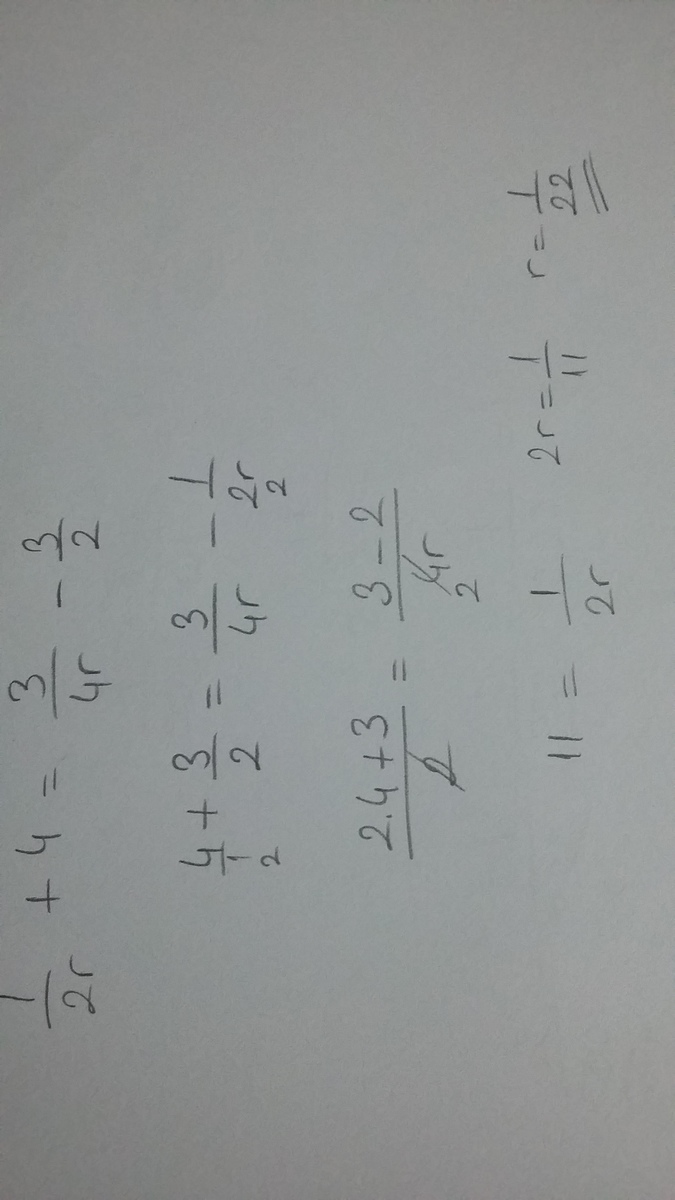 1/2r + 4 = 3/4r - 3/2
4/1 + 3/2 = 3/4r - 1/2r
2 2
2.4+3/2 = 3-2/4r
2
11 = 1/2r 2r = 1/11 r = 1/22